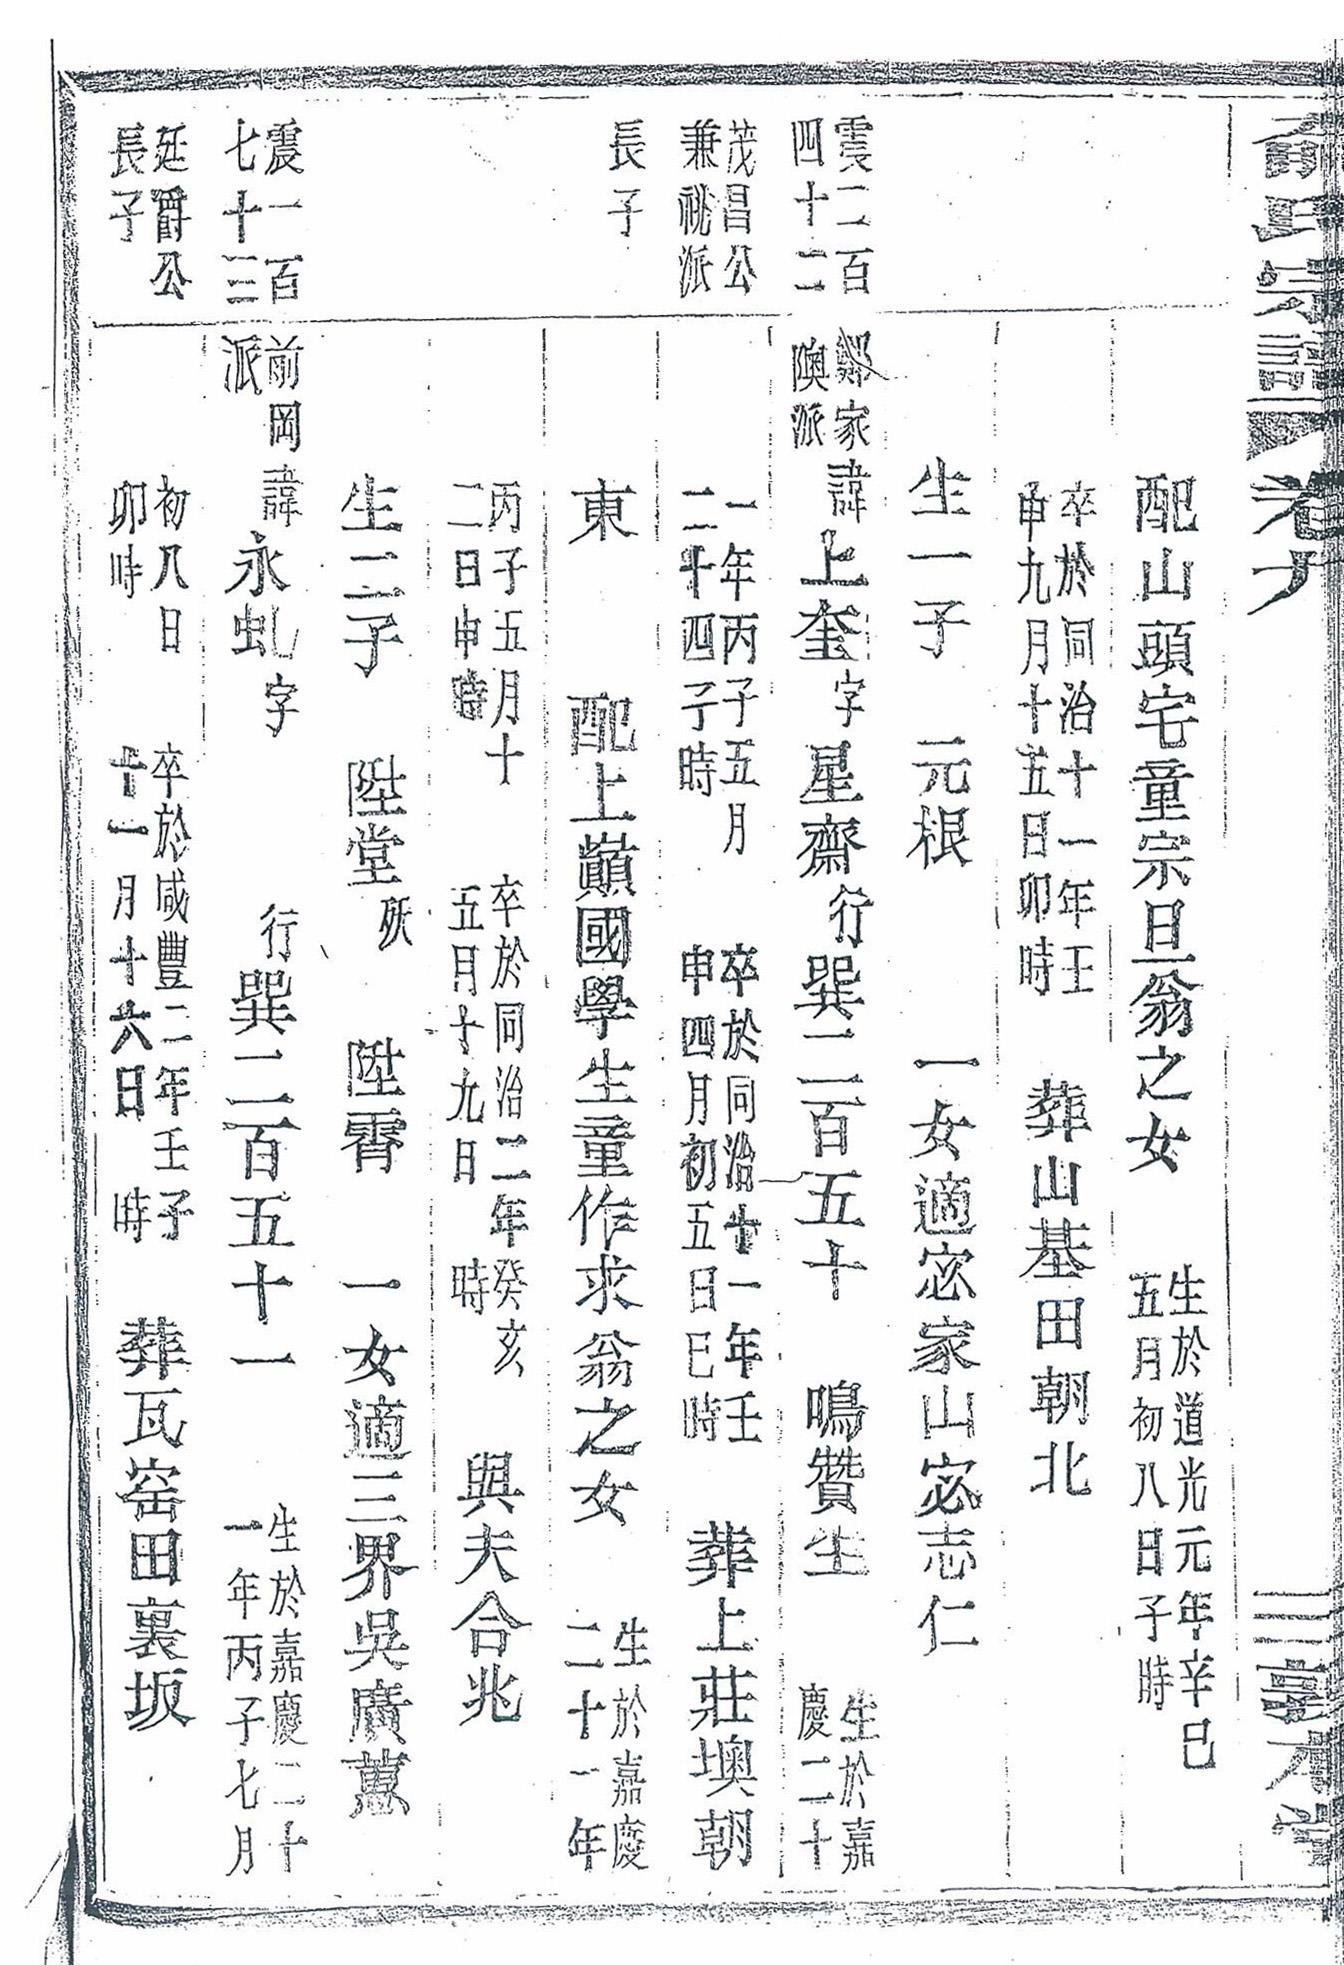 俞氏宗譜
卷六
三敦本堂
配山頭宅童宗旦翁之女 生於道光元年辛巳
五月初八日子時
卒於同治十一年壬
申九月十五日卯時 葬山基田朝北
生一子 元根 一女適宓家山宓志仁
震二百
四十二
鄭家
隩派
諱上奎字星齋行巽二百五十 鳴贊生 生於嘉
慶二十
茂昌公
兼祧派
一年丙子五月
二十四子時 卒於同治十一年壬
申四月初五日巳時 葬上莊墺朝
長子
東 配上巔國學生童作求翁之女 生於嘉慶
二十一年
丙子五月十
二日申時 卒於同治二年癸亥
五月十九日 時 與夫合兆
生二子 陞堂殀 陞霄 一女適三界吳廣蕙
震一百
七十三
前岡
派
諱永虬字 行巽二百五十一 生於嘉慶二十
一年丙子七月
廷爵公
長子
初八日
卯時 卒於咸豐二年壬子
十一月十六日 時 葬瓦窑田裏坂